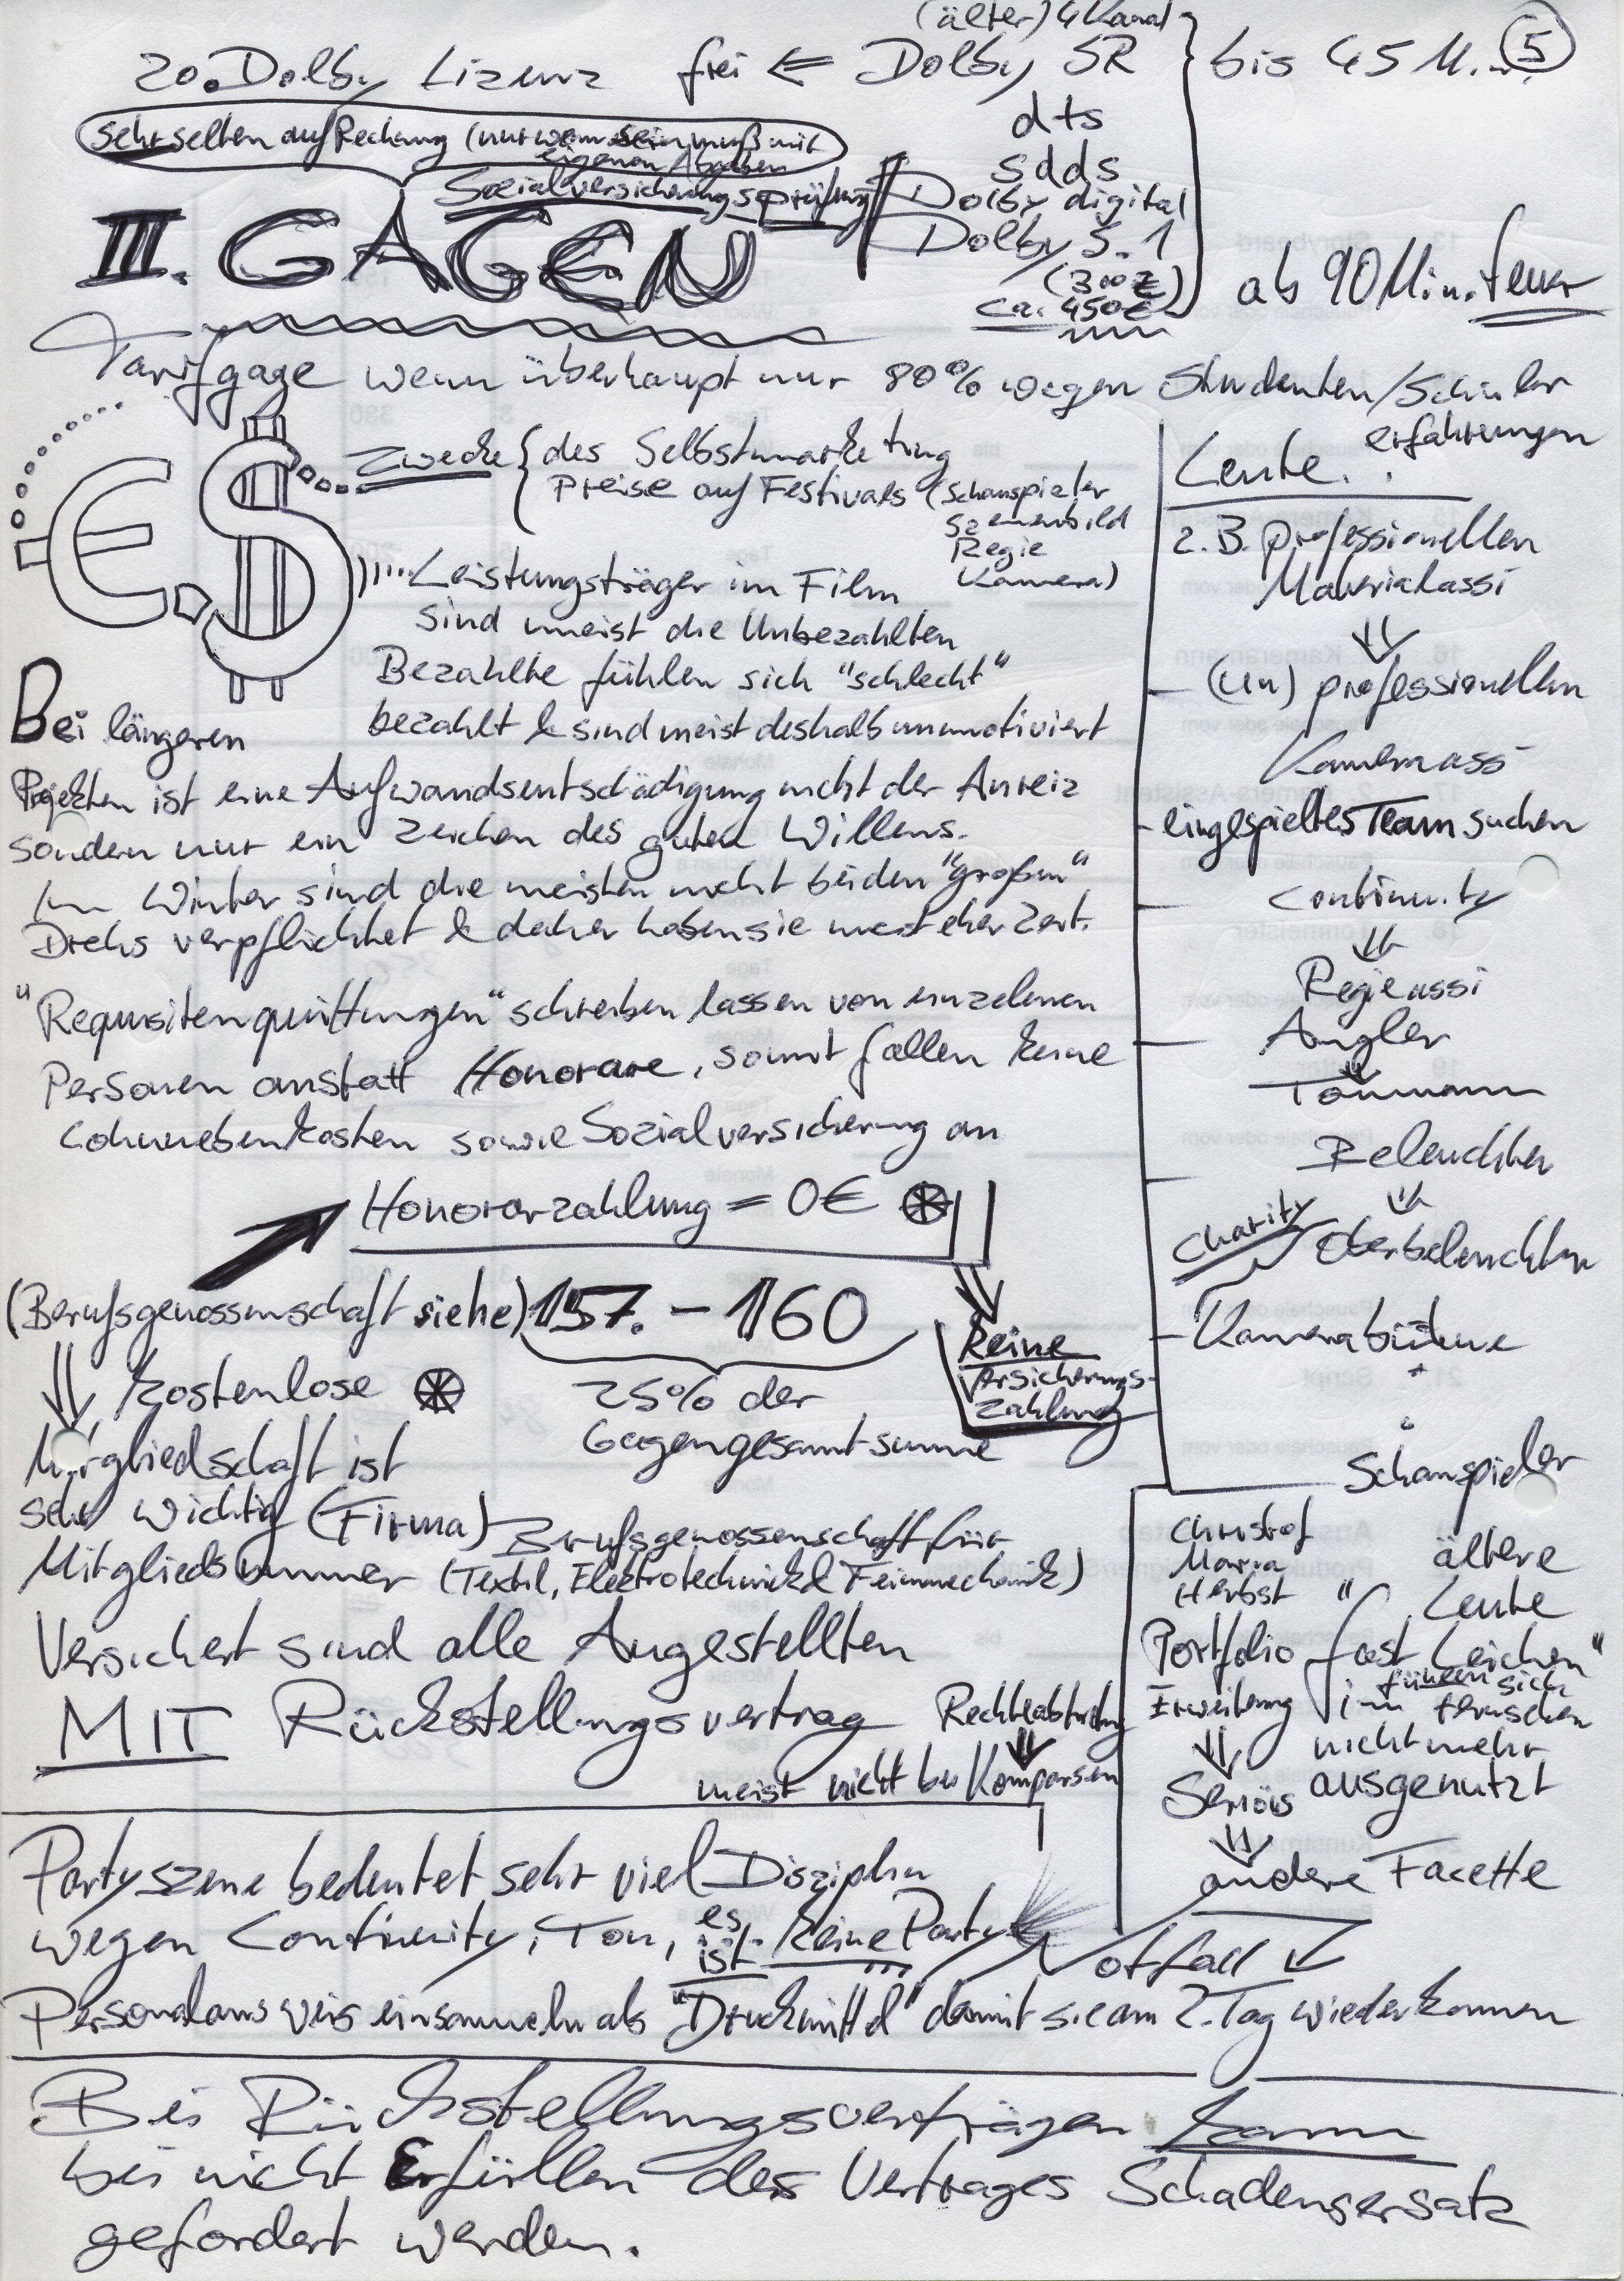 (älter) 4 Kanal
20. Dolby Lizenz frei ⇐ Dolby SR
bis 45 M...
5
dts
sdds
Dolby digital
Dolby 5.1
(300 €)
ca. 450€
ab 90 Min. teuer
sehr selten auf Rechnung (nur wenn sein muß mit
eigenen Abgaben
Sozialversicherungsprüfung
III. GAGEN
Tarifgage wenn überhaupt nur 80% wegen Studenten/Schüler
erfahrungen
€.$
Zwecke { des Selbstmarketing
Preise auf Festivals (Schauspieler
Szenenbild
Regie
Kamera)
Leistungsträger im Film
sind meist die Unbezahlten
Bezahlte fühlen sich "schlecht"
bezahlt & sind meist deshalb unmotiviert
Bei längeren
Projekten ist eine Aufwandsentschädigung nicht der Anreiz
sondern nur ein Zeichen des guten Willens.
Im Winter sind die meisten nicht bei den "großen"
Drehs verpflichtet & daher haben sie meist eher Zeit.
"Requisitenquittungen" schreiben lassen von einzelnen
Personen anstatt Honorare, somit fallen keine
Lohnnebenkosten sowie Sozialversicherung an
Honorarzahlung = 0€
(Berufsgenossenschaft siehe) 157. - 160
Keine
Versicherungs-
Zahlung
25% der
Gagengesamtsumme
kostenlose
Mitgliedschaft ist
sehr wichtig (Firma)
Mitgliedsnummer
Berufsgenossenschaft für
(Textil, Elektrotechnick & Feinmechanik)
Versichert sind alle Angestellten
MIT Rückstellungsvertrag
Rechteabtretung
meist nicht bei Komparsen
Leute..
z.B. professionellen
Materialassi
(un) professionellen
Kameraassi
eingespieltes Team suchen
Continuity
Regieassi
Angler
Tonmann
Beleuchter
Charity
Oberbeleuchter
Kamerabühne
Schauspieler
Christof
Maria
Herbst
Portfolio
Erweiterung
Seriös
andere Facette
ältere
Leute
"fast Leichen"
fühlen sich
im fernsehen
nicht mehr
ausgenutzt
Partyszene bedeutet sehr viel Disziplin
wegen Continuity, Ton, es ist keine Party
Notfall
Personalausweis einsammeln als "Druckmittel" damit sie am 2. Tag wieder kommen
Bei Rückstellungsverträgen kann
bei nicht Erfüllen des Vertrages Schadensersatz
gefordert werden.